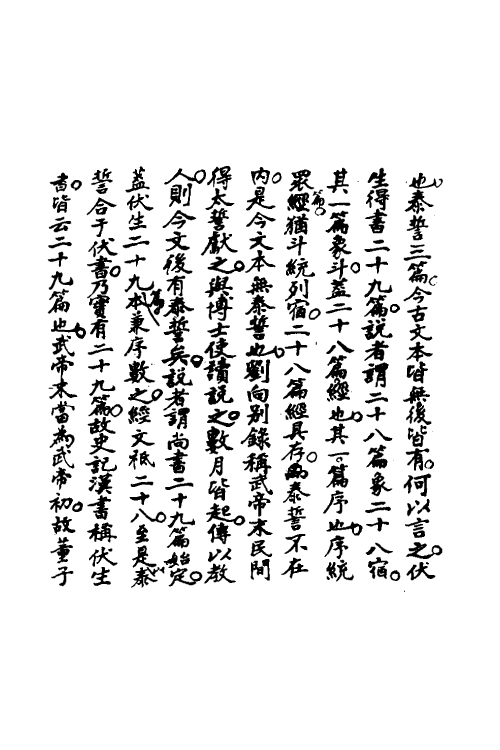 也泰誓三篇今古文本皆無後皆有何以言之伏
生得書二十九篇說者謂二十八篇象二十八宿
其一篇象斗蓋二十八篇經也其一篇序也序統
眾經猶斗統列宿二十八篇經具存而泰誓不在
內是今文本無泰誓也劉向別錄稱武帝末民間
得太誓獻之與博士使讀說之數月皆起傳以教
人則今文後有泰誓矣說者謂尚書二十九篇始定
蓋伏生二十九篇本兼序數之經文祗二十八至是泰
誓合于伏書乃實有二十九篇故史記漢書稱伏生
書皆云二十九篇也武帝末當為武帝初故董子